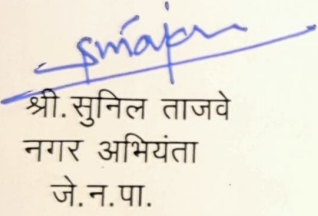 श्री.सुनिल ताजवे
नगर अभियंता
जे.न.पा.